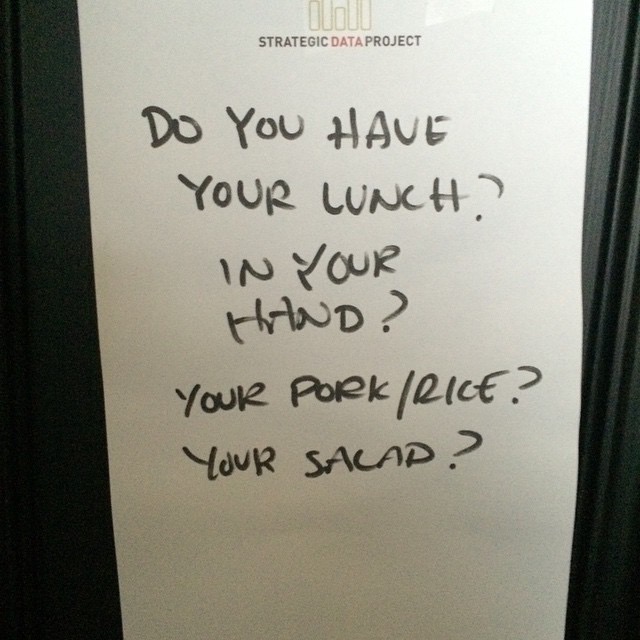 STRATEGIC DATA PROJECT
DO YOU HAVE
YOUR LUNCH?
IN YOUR
HAND?
YOUR PORK/RICE?
YOUR SALAD?